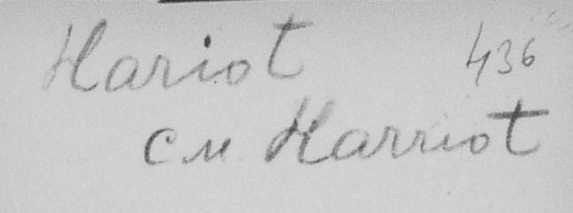 Hariot 436
см Harriot